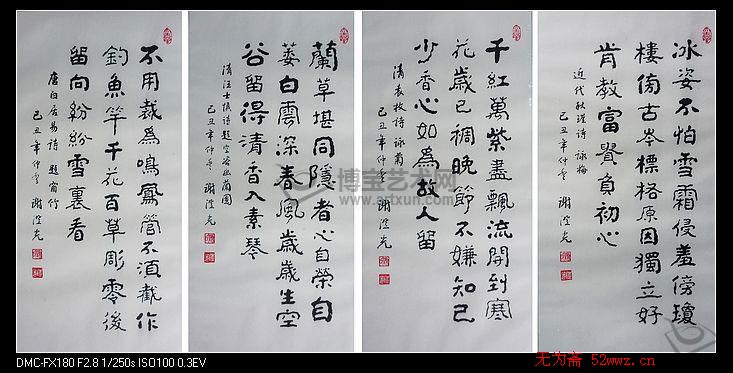 冰姿不怕雪霜侵羞傍瓊
樓傍古岑標格原因獨立好
肯教富貴負初心
近代秋瑾詩 詠梅
己丑年仲 謝澄光
千紅萬紫盡飄流開到寒
花歲已稠晚節不嫌知己
少香心如為故人留
清袁枚詩 詠菊
己丑年仲 謝澄光
蘭草堪同隱者心自榮自
萎白雲深春風歲歲生空
谷留得清香入素琴
清汪士慎詩題空谷幽蘭圖
己丑年仲 謝澄光
不用裁為鳴鳳管不須截作
釣魚竿千花百草彫零後
留向紛紛雪裏看
唐白居易詩 題窗竹
己丑年仲 謝澄光
博宝艺术网
www.artxun.com
DMC-FX180 F2.8 1/250s ISO100 0.3EV
无为斋 52wwz.cn